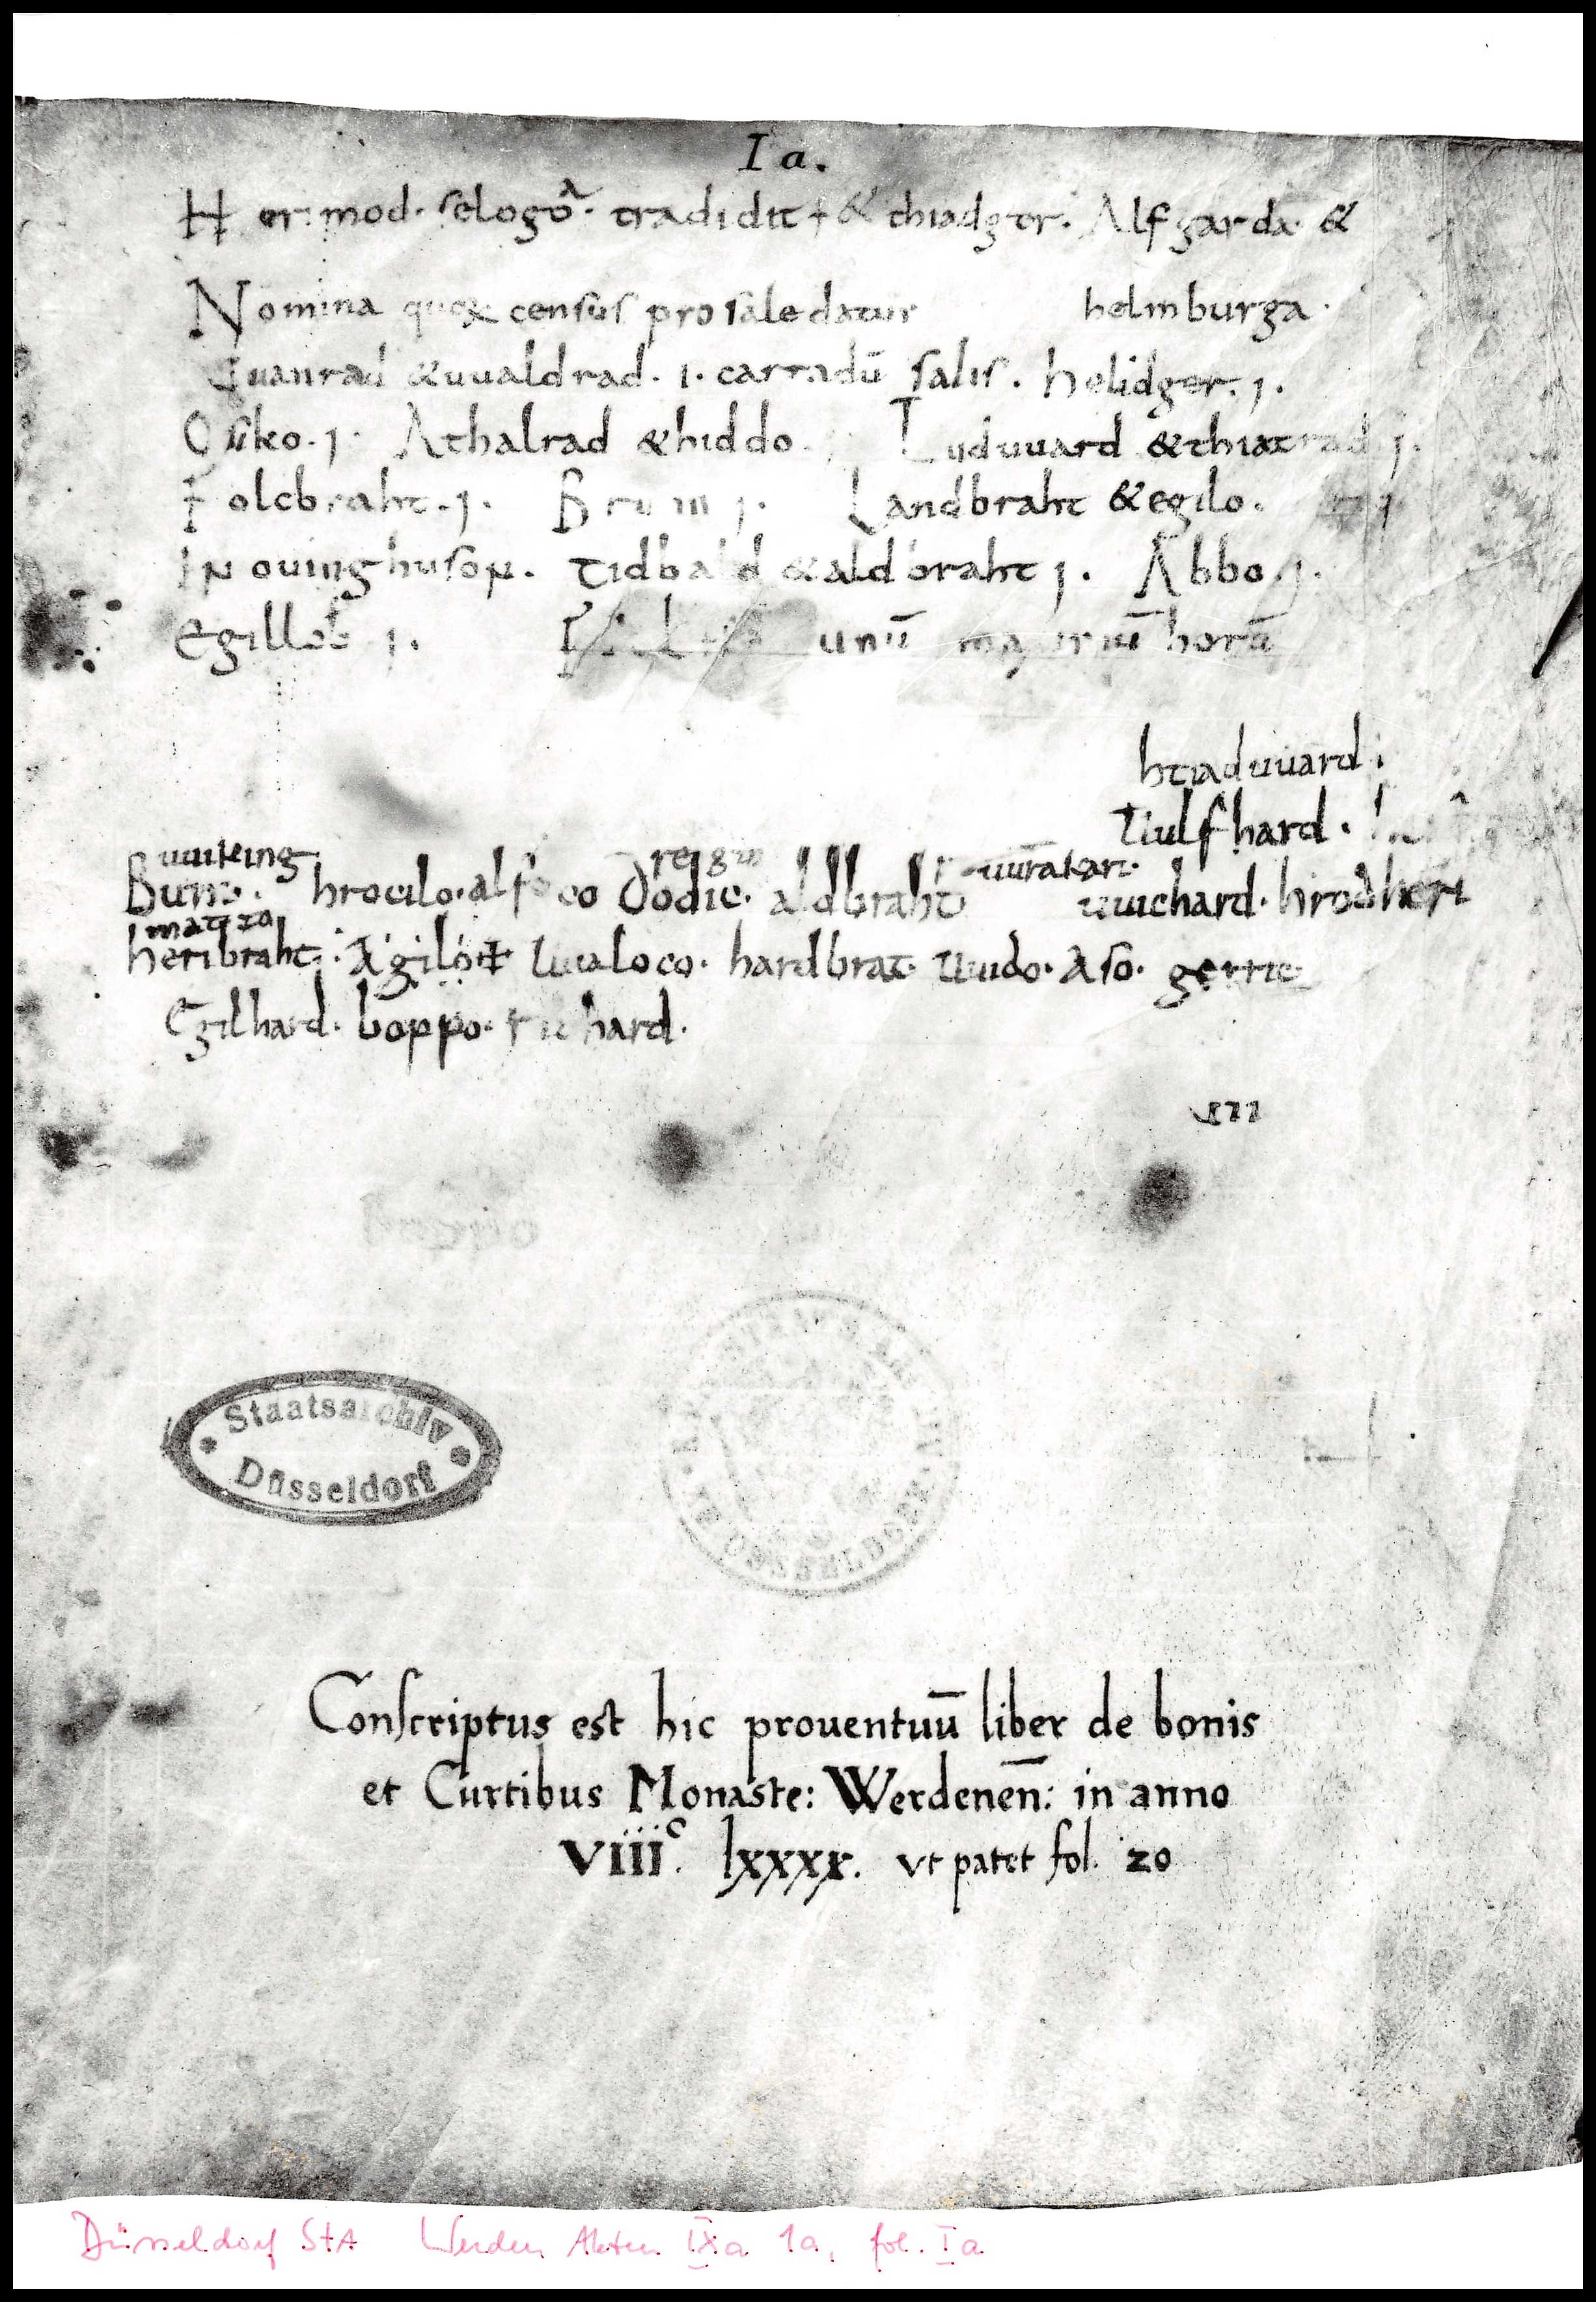 I a.
Her mod. selogo. tradidit & thiadger. Alfgarda. &
Nomina census pro sale datur helmburga.
& uualdrad. ı. carradū salis. helidger. ȷ.
Osiko. ȷ. Athalrad & hiddo. Liuduuard & thiatrad ȷ.
Folcbraht. ȷ. ȷ. Landbraht & egilo. ȷ
IN ouinghuson. Tidbald & aldbraht ȷ. Abbo. ȷ.
ȷ. unū horū
htaduuard.
Uulfhard.
uuiking
hrocilo. dodic. aldbraht uuichard. hrodheri
heribraht. Uualoco. hardbrat. Uuido. Aso. gerric
Egilhard. boppo. richard.
Staatsarchiv
Düsseldorf
DÜSSELDORF
Conscriptus est hic prouentuū liber de bonis
et Curtibus Monaste: Werdenen̄: in anno
viiiᶜ. lxxxx. vt patet fol. 20
Düsseldorf StA Werden Akten IXa 1a, fol. Ia